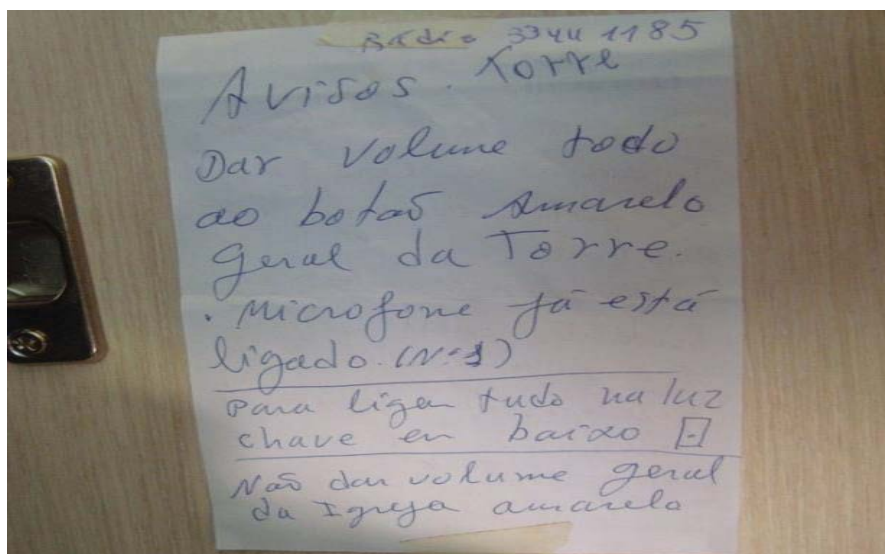 Rádio 3344 1185
Avisos. Torre
Dar volume todo
ao botaõ Amarelo
geral da Torre.
. Microfone já está
ligado. (Nº1)
Para ligar tudo na luz
chave en baixo [-]
Naõ dar volume geral
da Igreja amarelo